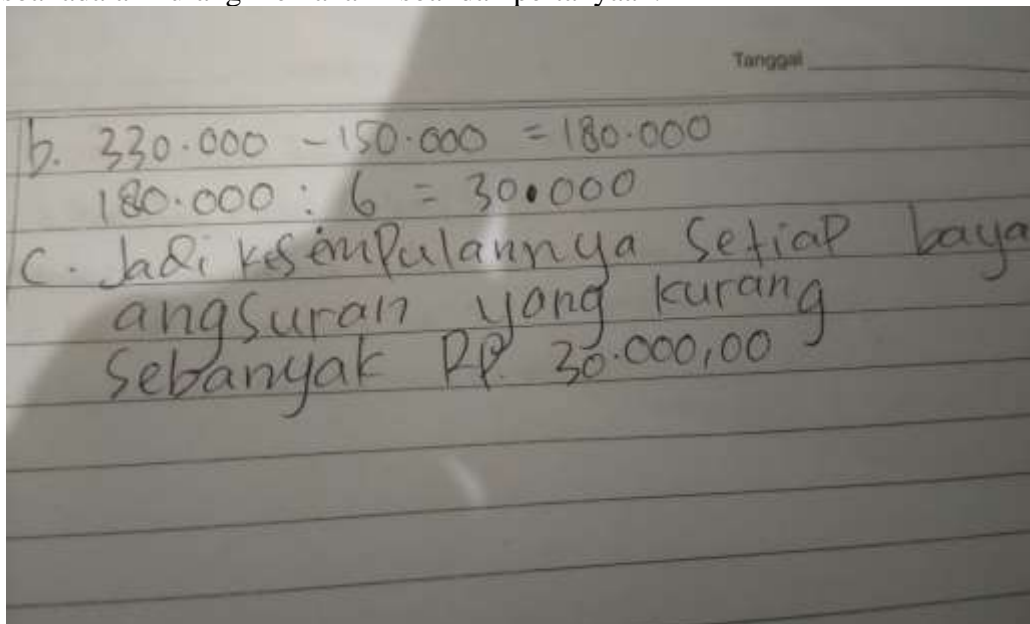 Tanggal
b. 330.000 - 150.000 = 180.000
180.000 : 6 = 30.000
C. Jadi kesimpulannya Setiap baya
angsuran yang kurang
Sebanyak RP. 30.000,00